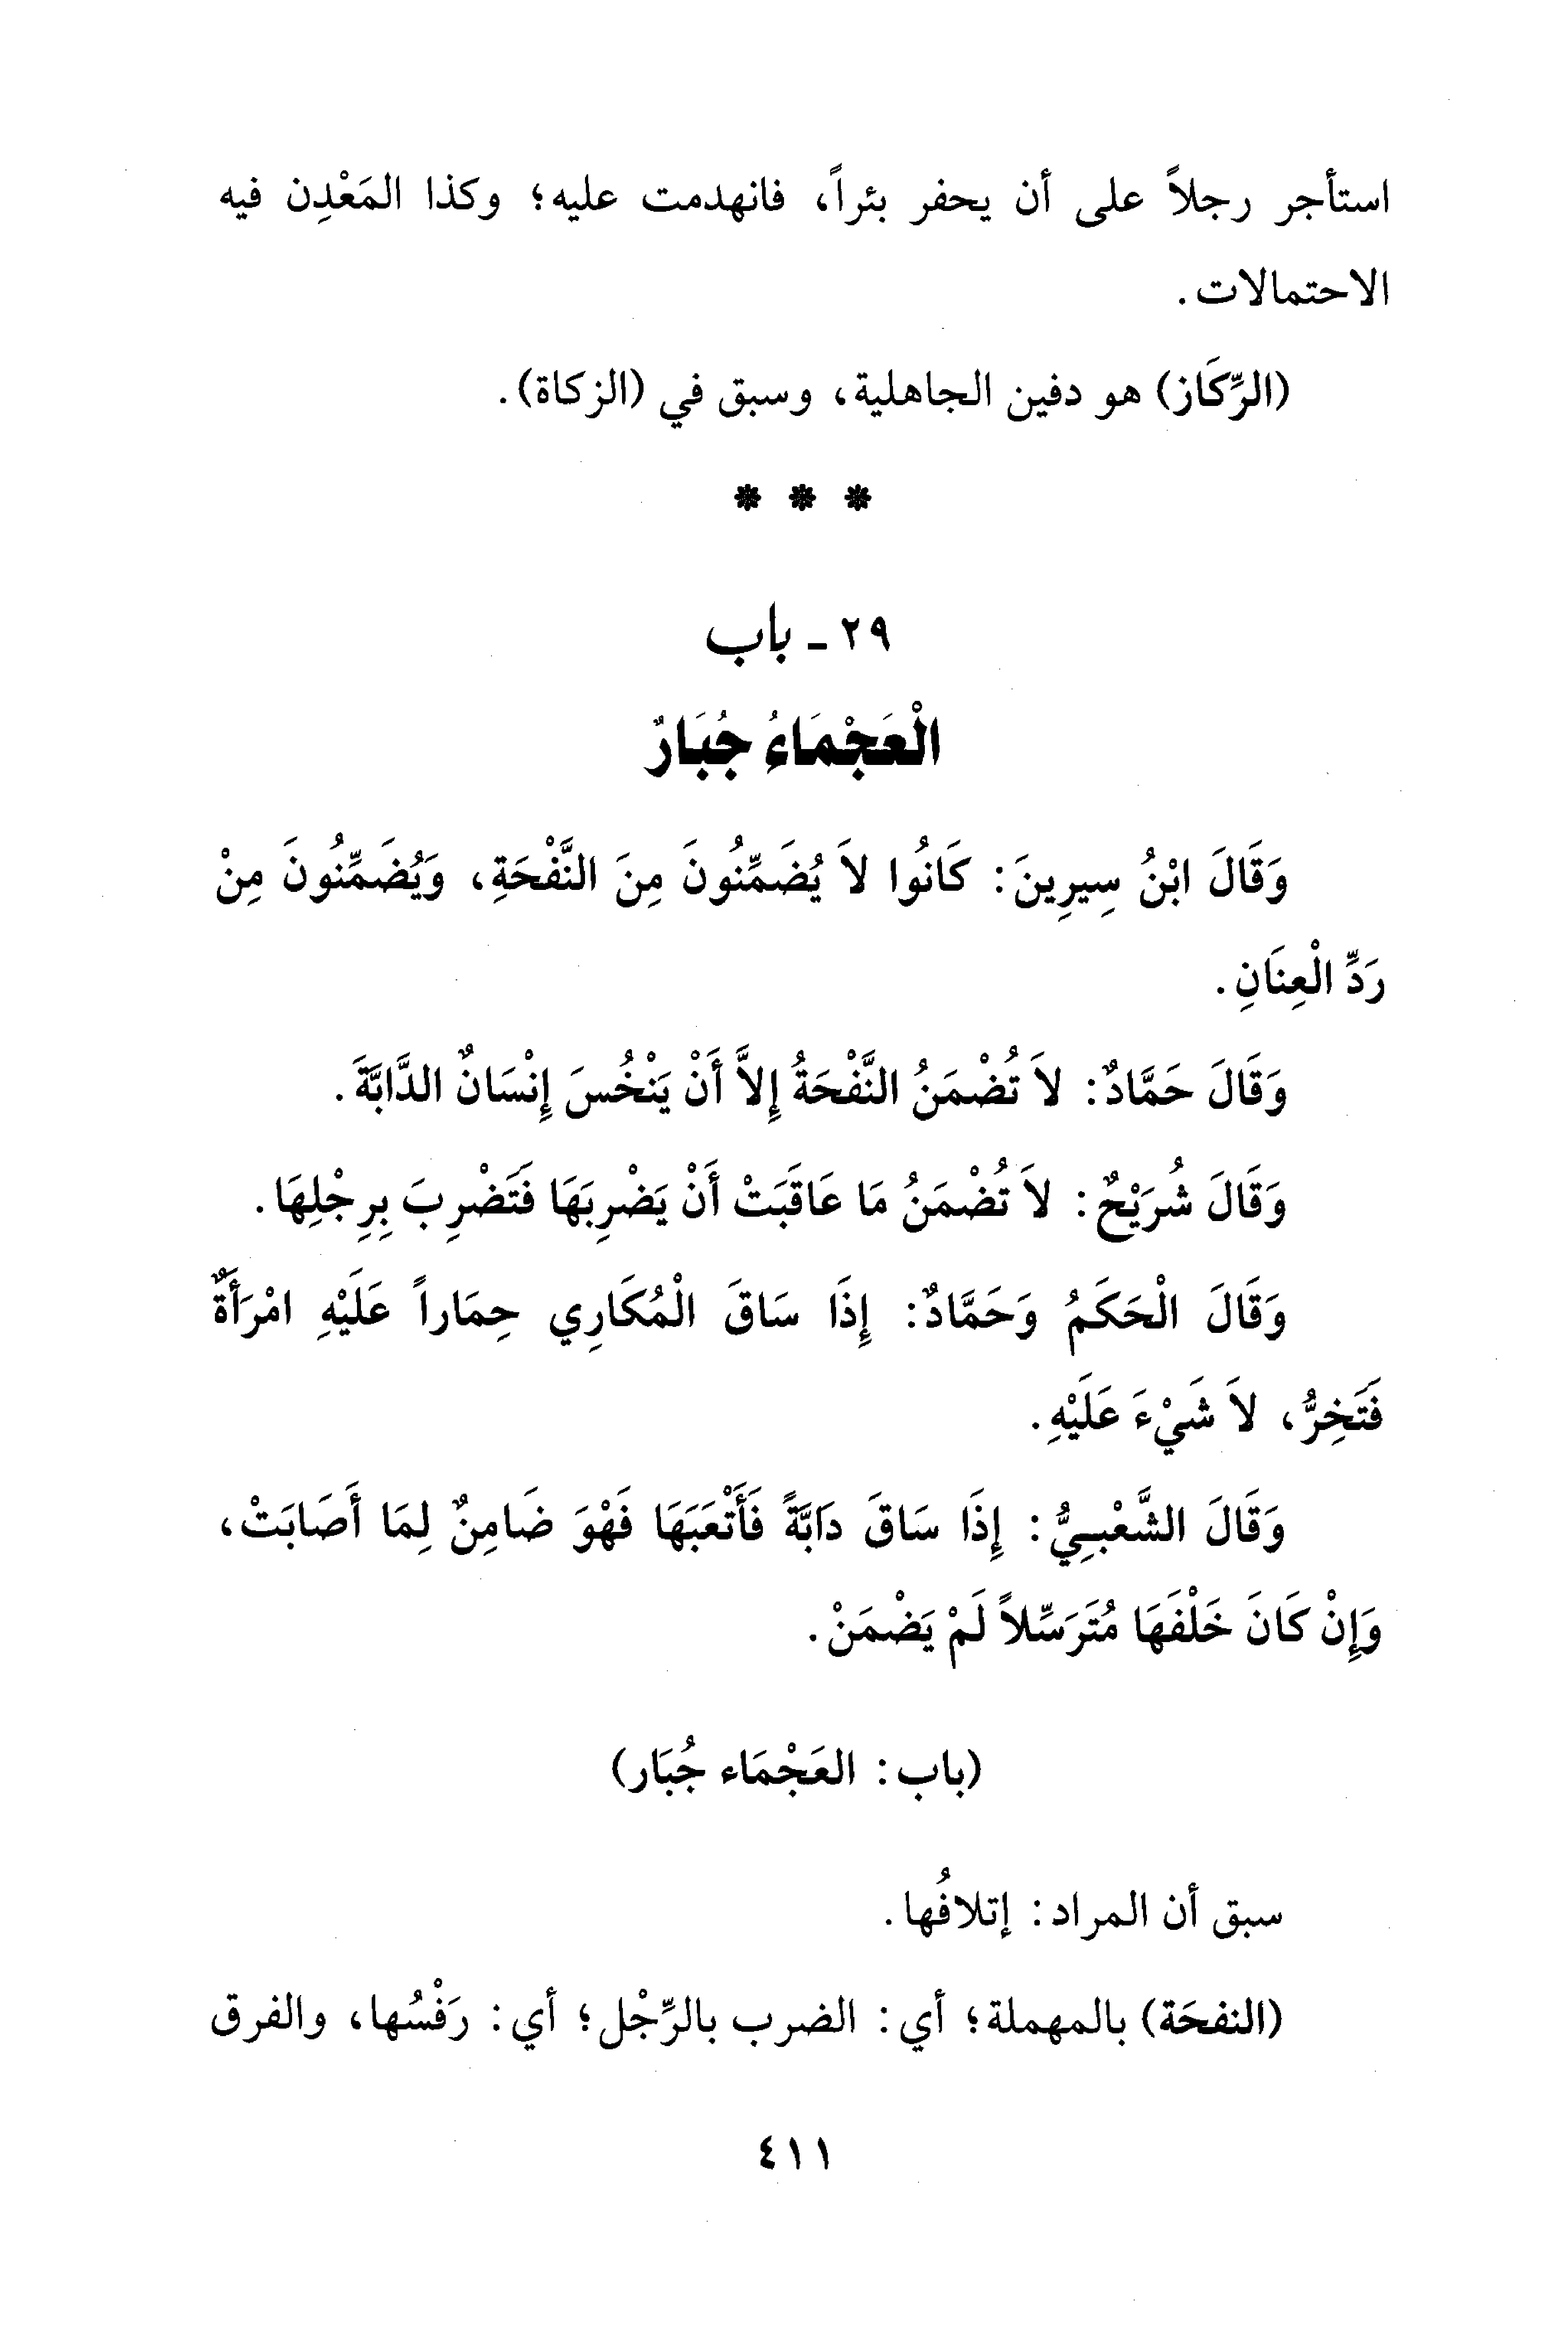 استأجر رجلاً على أن يحفر بئراً، فانهدمت عليه؛ وكذا المَعْدِن فيه
الاحتمالات.
(الرِّكَاز) هو دفين الجاهلية، وسبق في (الزكاة).
* * *
٢٩ - باب
الْعَجْمَاءُ جُبَارٌ
وَقَالَ ابْنُ سِيرِينَ: كَانُوا لاَ يُضَمِّنُونَ مِنَ النَّفْحَةِ، وَيُضَمِّنُونَ مِنْ
رَدِّ الْعِنَانِ.
وَقَالَ حَمَّادٌ: لاَ تُضْمَنُ النَّفْحَةُ إِلاَّ أَنْ يَنْخُسَ إِنْسَانٌ الدَّابَّةَ.
وَقَالَ شُرَيْحٌ: لاَ تُضْمَنُ مَا عَاقَبَتْ أَنْ يَضْرِبَهَا فَتَضْرِبَ بِرِجْلِهَا.
وَقَالَ الْحَكَمُ وَحَمَّادٌ: إِذَا سَاقَ الْمُكَارِي حِمَاراً عَلَيْهِ امْرَأَةٌ
فَتَخِرُّ، لاَ شَيْءَ عَلَيْهِ.
وَقَالَ الشَّعْبِيُّ: إِذَا سَاقَ دَابَّةً فَأَتْعَبَهَا فَهْوَ ضَامِنٌ لِمَا أَصَابَتْ،
وَإِنْ كَانَ خَلْفَهَا مُتَرَسِّلاً لَمْ يَضْمَنْ.
(باب: العَجْمَاء جُبَار)
سبق أن المراد: إتلافُها.
(النفحَة) بالمهملة؛ أي: الضرب بالرِّجْل؛ أي: رَفْسُها، والفرق
٤١١